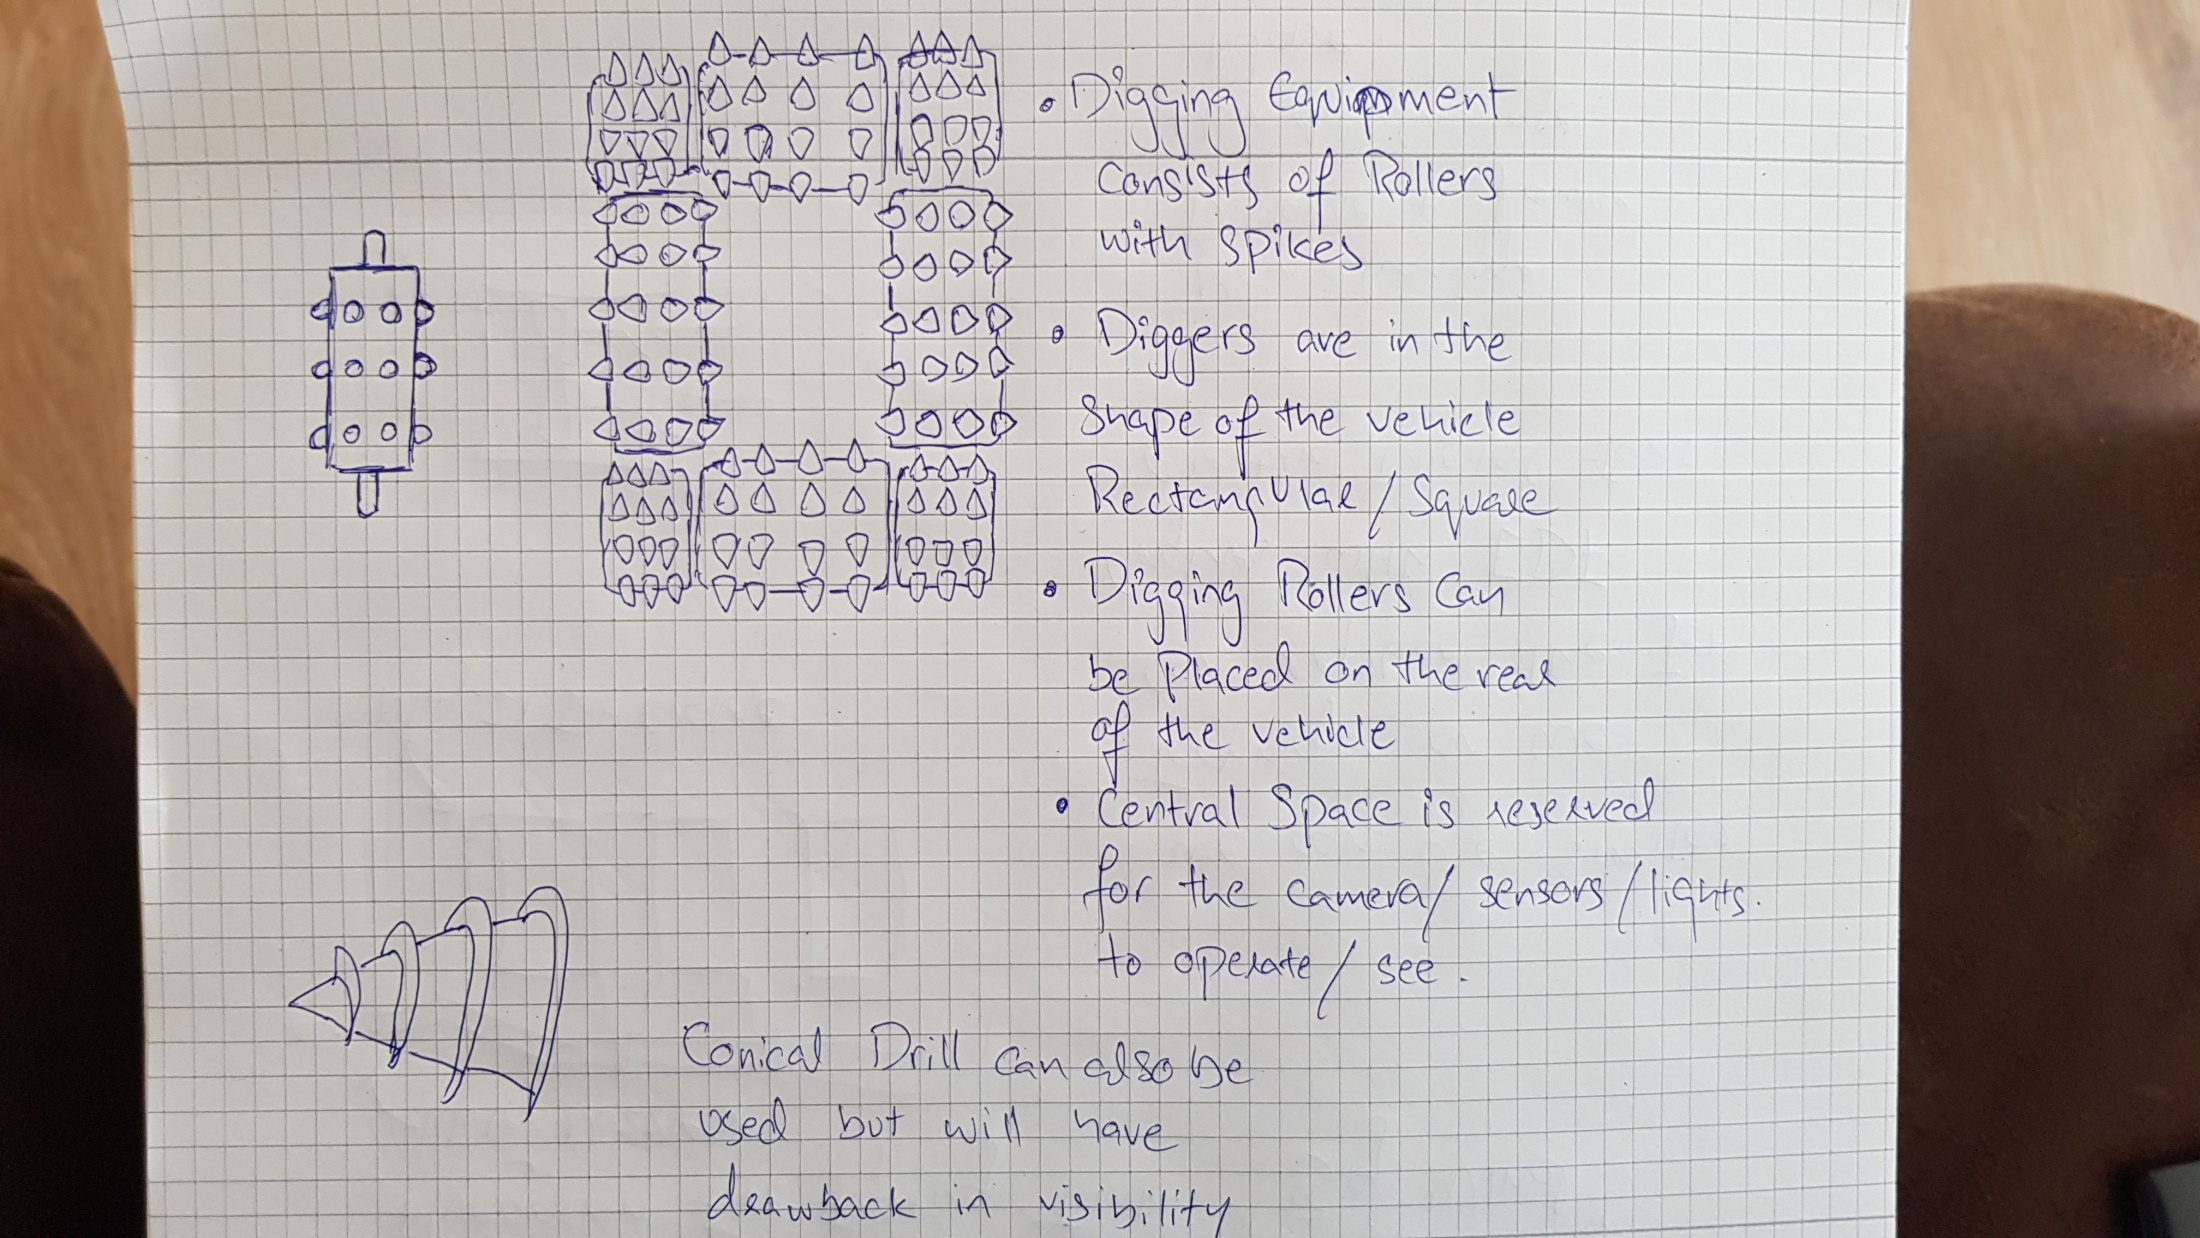 • Digging Equipment
Consists of Rollers
with Spikes
• Diggers are in the
Shape of the vehicle
Rectangular/Square
• Digging Rollers Can
be Placed on the rear
of the vehicle
• Central Space is reserved
for the camera/sensors/lights.
to operate/see.
Conical Drill can also be
used but will have
drawback in visibility